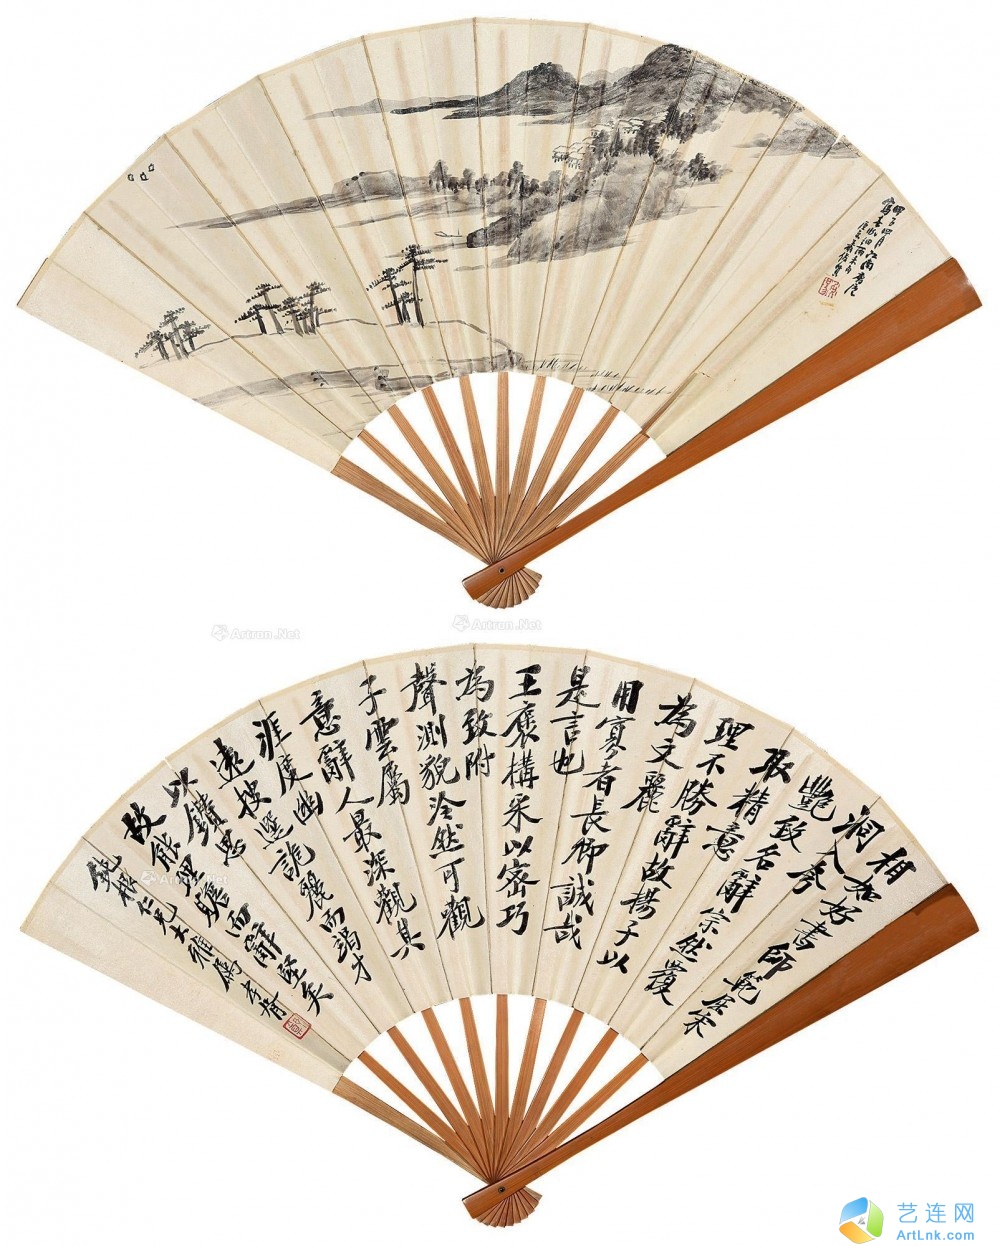 相如好書師範屈宋
洞入夸
豔致名辭宗然覆
取精意
理不勝辭故揚子以
為文麗
用寡者長卿誠哉
是言也
王褒構采以密巧
為致附
聲測貌泠然可觀
子雲屬
意辭人最深觀其
涯度幽
遠搜選詭麗而竭才
以鑽思
故能理贍而辭堅矣
仁兄大雅屬
Artron.Net
Artron.Net
艺连网
ArtLnk.com